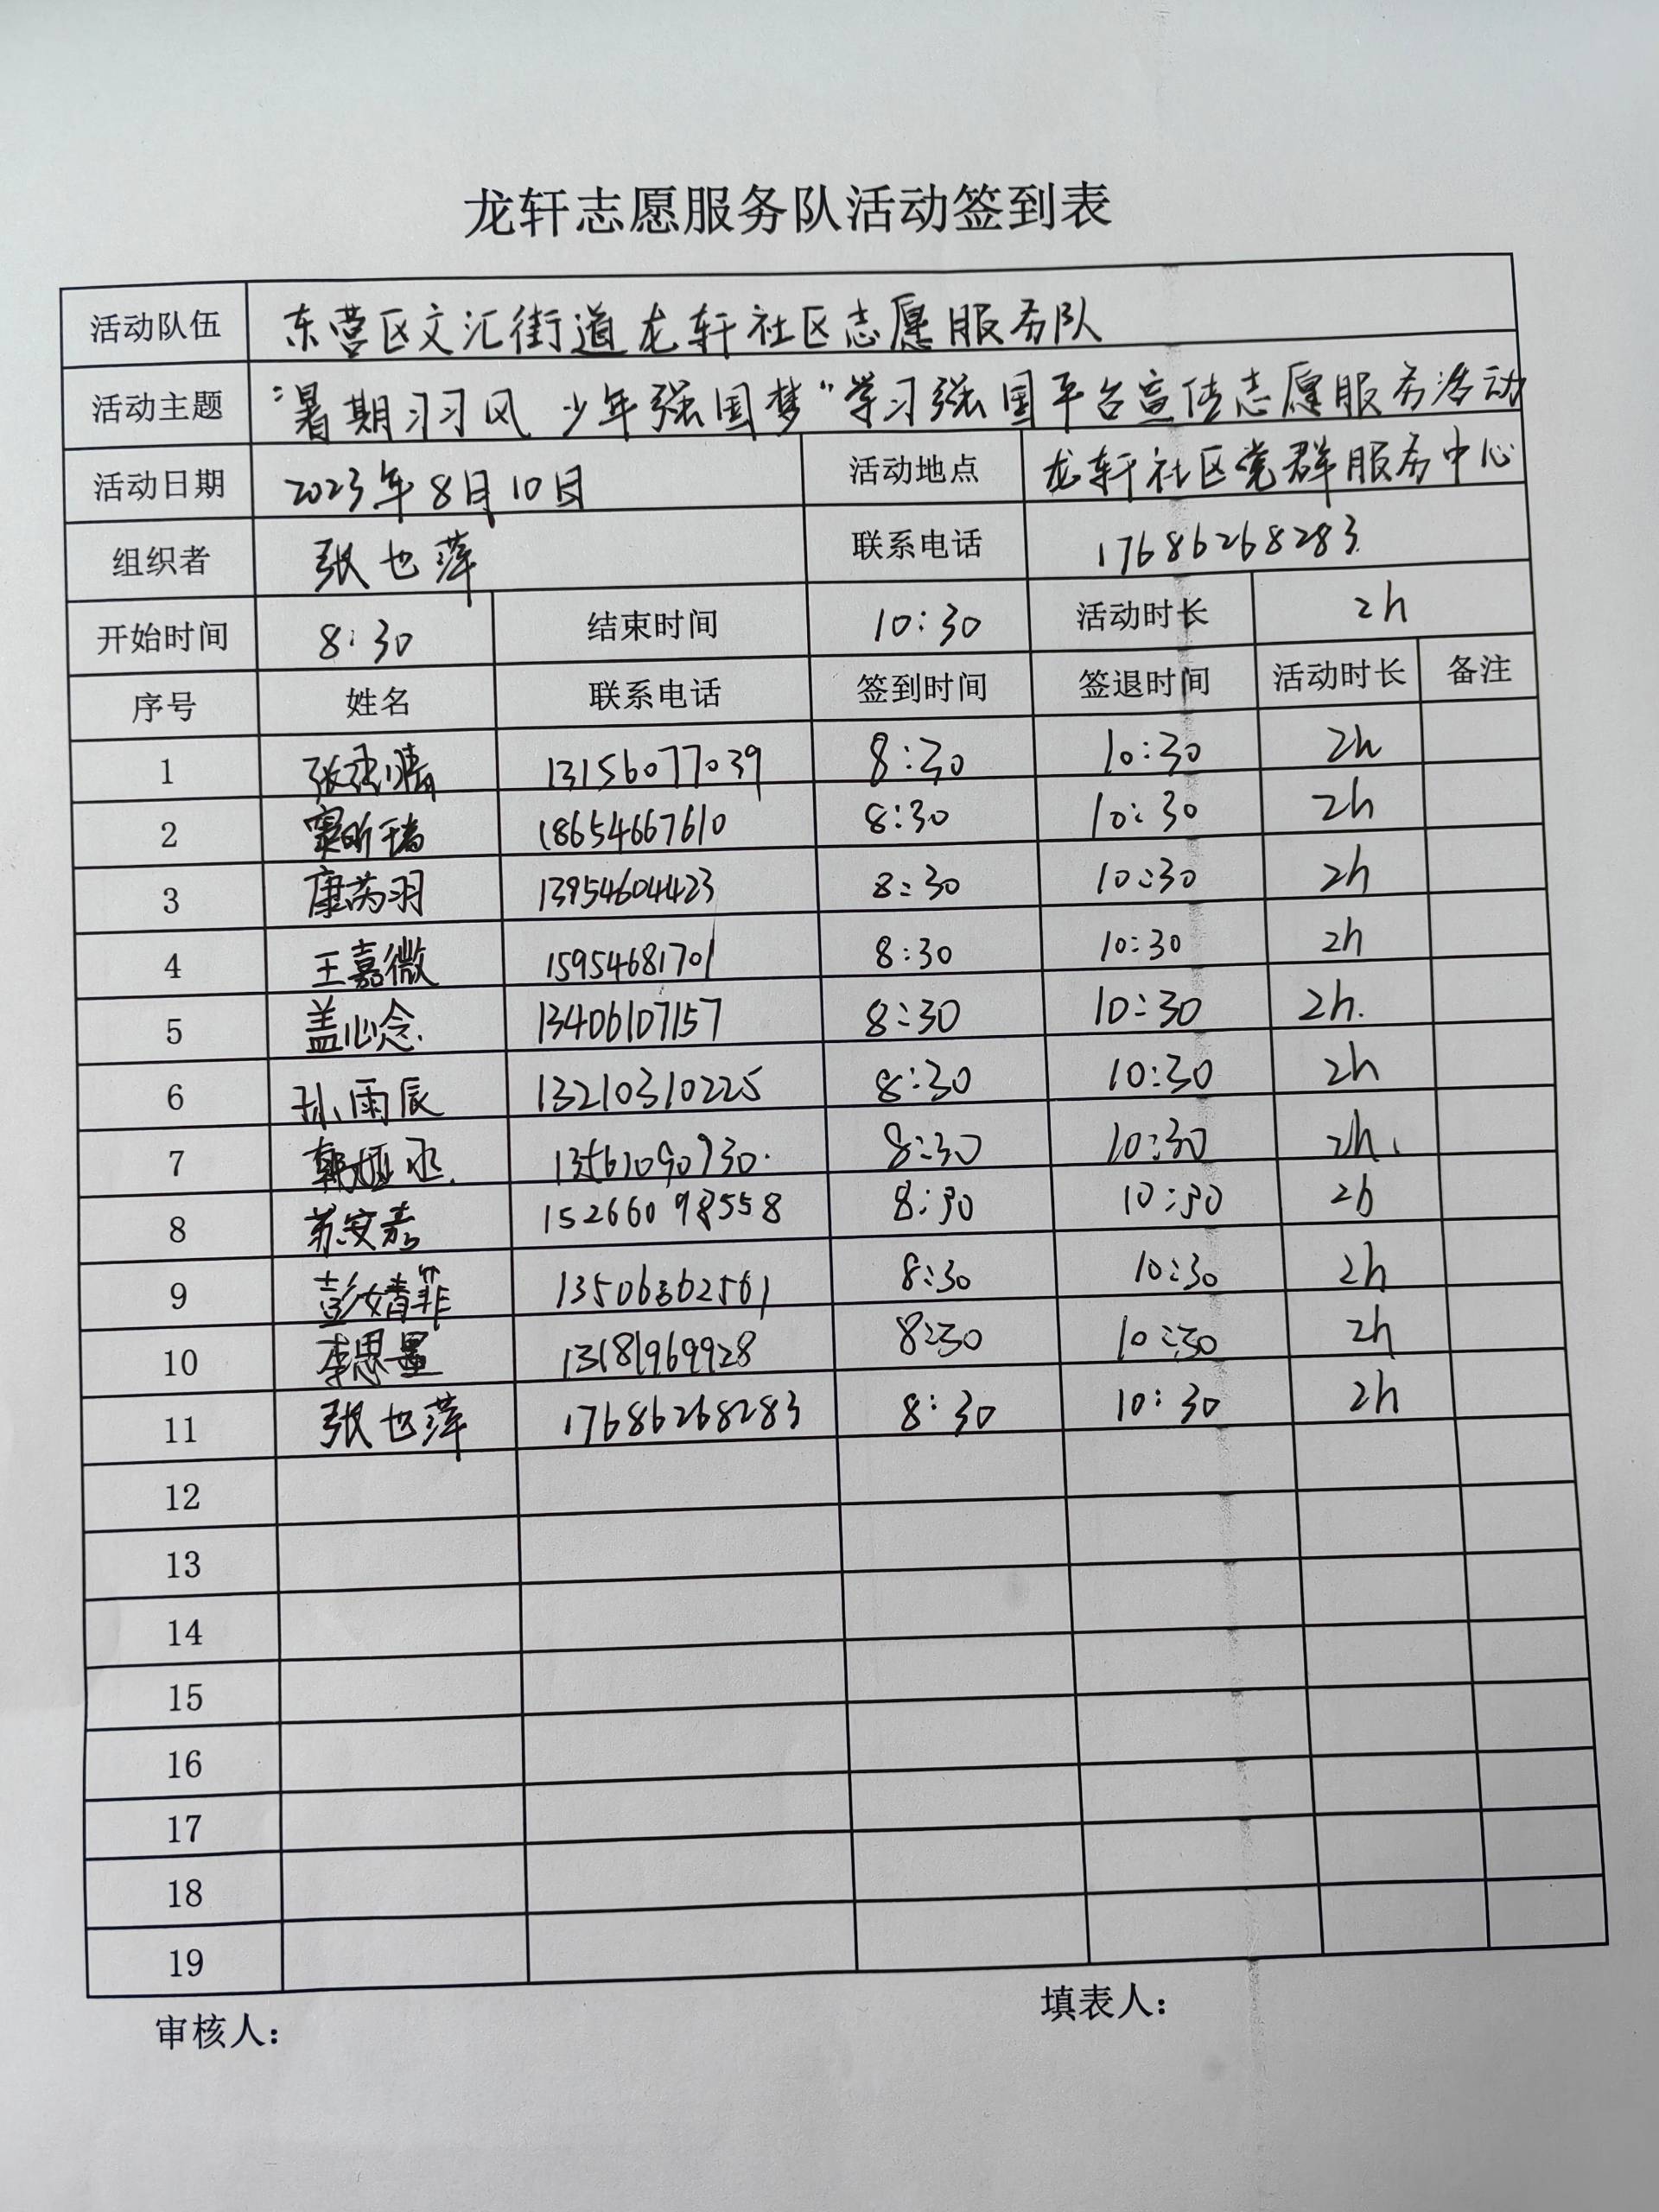 龙轩志愿服务队活动签到表
活动队伍 东营区文汇街道龙轩社区志愿服务队
活动主题 “暑期习习风 少年强国梦”学习强国平台宣传志愿服务活动
活动日期 2023年8月10日 活动地点 龙轩社区党群服务中心
组织者 张也萍 联系电话 17686268283
开始时间 8:30 结束时间 10:30 活动时长 2h
序号 姓名 联系电话 签到时间 签退时间 活动时长 备注
1 13156077039 8:30 10:30 2h
2 窦昕瑞 18654667610 8:30 10:30 2h
3 康芮羽 13954604423 8:30 10:30 2h
4 王嘉微 15954681701 8:30 10:30 2h
5 盖心念 13406107157 8:30 10:30 2h.
6 孙雨辰 13210310225 8:30 10:30 2h
7 8:30 10:30 2h
8 苏安嘉 15266098558 8:30 10:30 2h
9 彭婧菲 13506362561 8:30 10:30 2h
10 13181969928 8:30 10:30 2h
11 张也萍 17686268283 8:30 10:30 2h
12
13
14
15
16
17
18
19
审核人： 填表人：